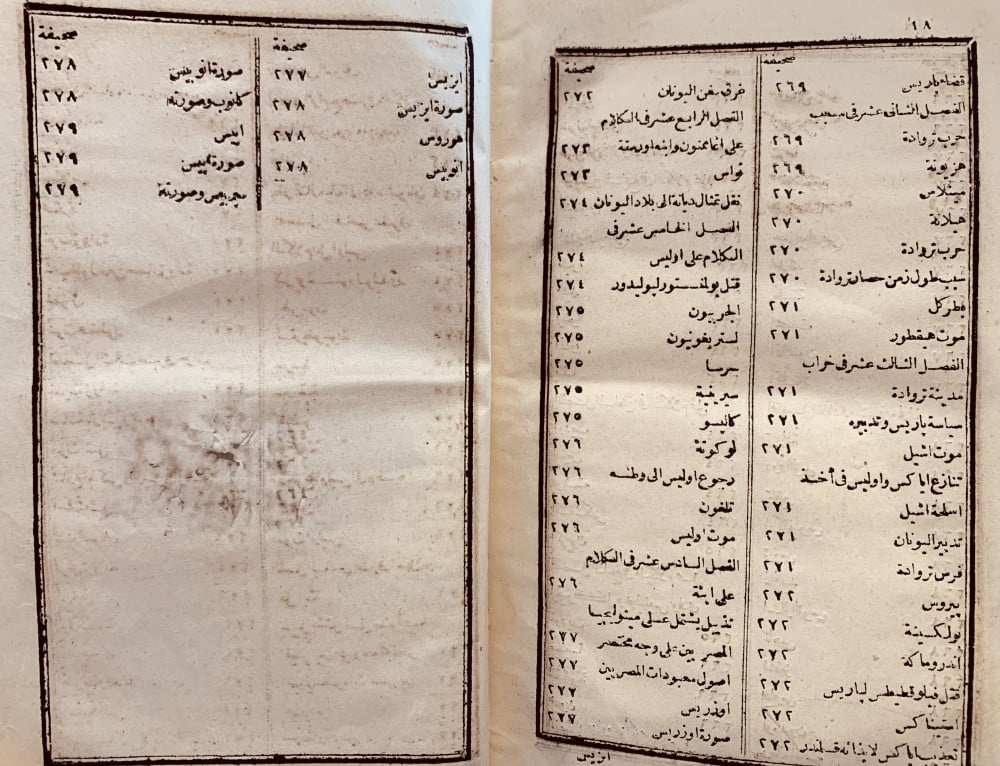 ١٨
صحيفة
قضاء پاريس ٢٦٩
الفصل الثانى عشر فى سبب
حرب تروادة ٢٦٩
هزيونة ٢٦٩
مينلاس ٢٧٠
هيلانة ٢٧٠
حرب تروادة ٢٧٠
سبب طول زمن حصار تروادة ٢٧٠
پطركل ٢٧١
موت هيقطور ٢٧١
الفصل الثالث عشر فى خراب
مدينة تروادة ٢٧١
سياسة پاريس وتدبيره ٢٧١
موت اشيل ٢٧١
تنازع اياكس واوليس فى أخذ
اسلحة اشيل ٢٧١
تدبير اليونان ٢٧١
فرس تروادة ٢٧١
پيروس ٢٧٢
پولكسينة ٢٧٢
اندروماكة ٢٧٢
قتل فيلوقطيطس لپاريس ٢٧٢
استيناكس ٢٧٢
تعذيب اياكس لابنة قسندر ٢٧٢
صحيفة
غرق سفن اليونان ٢٧٢
الفصل الرابع عشر فى الكلام
على اغاممنون وابنه اورسته ٢٧٣
ثواس ٢٧٣
نقل تمثال ديانة الى بلاد اليونان ٢٧٤
الفصل الخامس عشر فى
الكلام على اوليس ٢٧٤
قتل پولنستور لپوليدور ٢٧٤
الجربيون ٢٧٥
لستريغونيون ٢٧٥
سرسا ٢٧٥
سيرينية ٢٧٥
كاليسو ٢٧٥
لوكوتة ٢٧٦
رجوع اوليس الى وطنه ٢٧٦
تلغون ٢٧٦
موت اوليس ٢٧٦
الفصل السادس عشر فى الكلام
على ابنة ٢٧٦
تذييل يشتمل على ميثولجيا
المصريين على وجه مختصر ٢٧٧
اصول معبودات المصريين ٢٧٧
اوزريس ٢٧٧
صورة اوزريس ٢٧٧
ازيس
صحيفة
ازيس ٢٧٧
صورة ازيس ٢٧٨
هوروس ٢٧٨
انوبيس ٢٧٨
صحيفة
صورة انوبيس ٢٧٨
كانوب وصورته ٢٧٨
اپيس ٢٧٩
صورة اپيس ٢٧٩
سيرپيس وصورته ٢٧٩